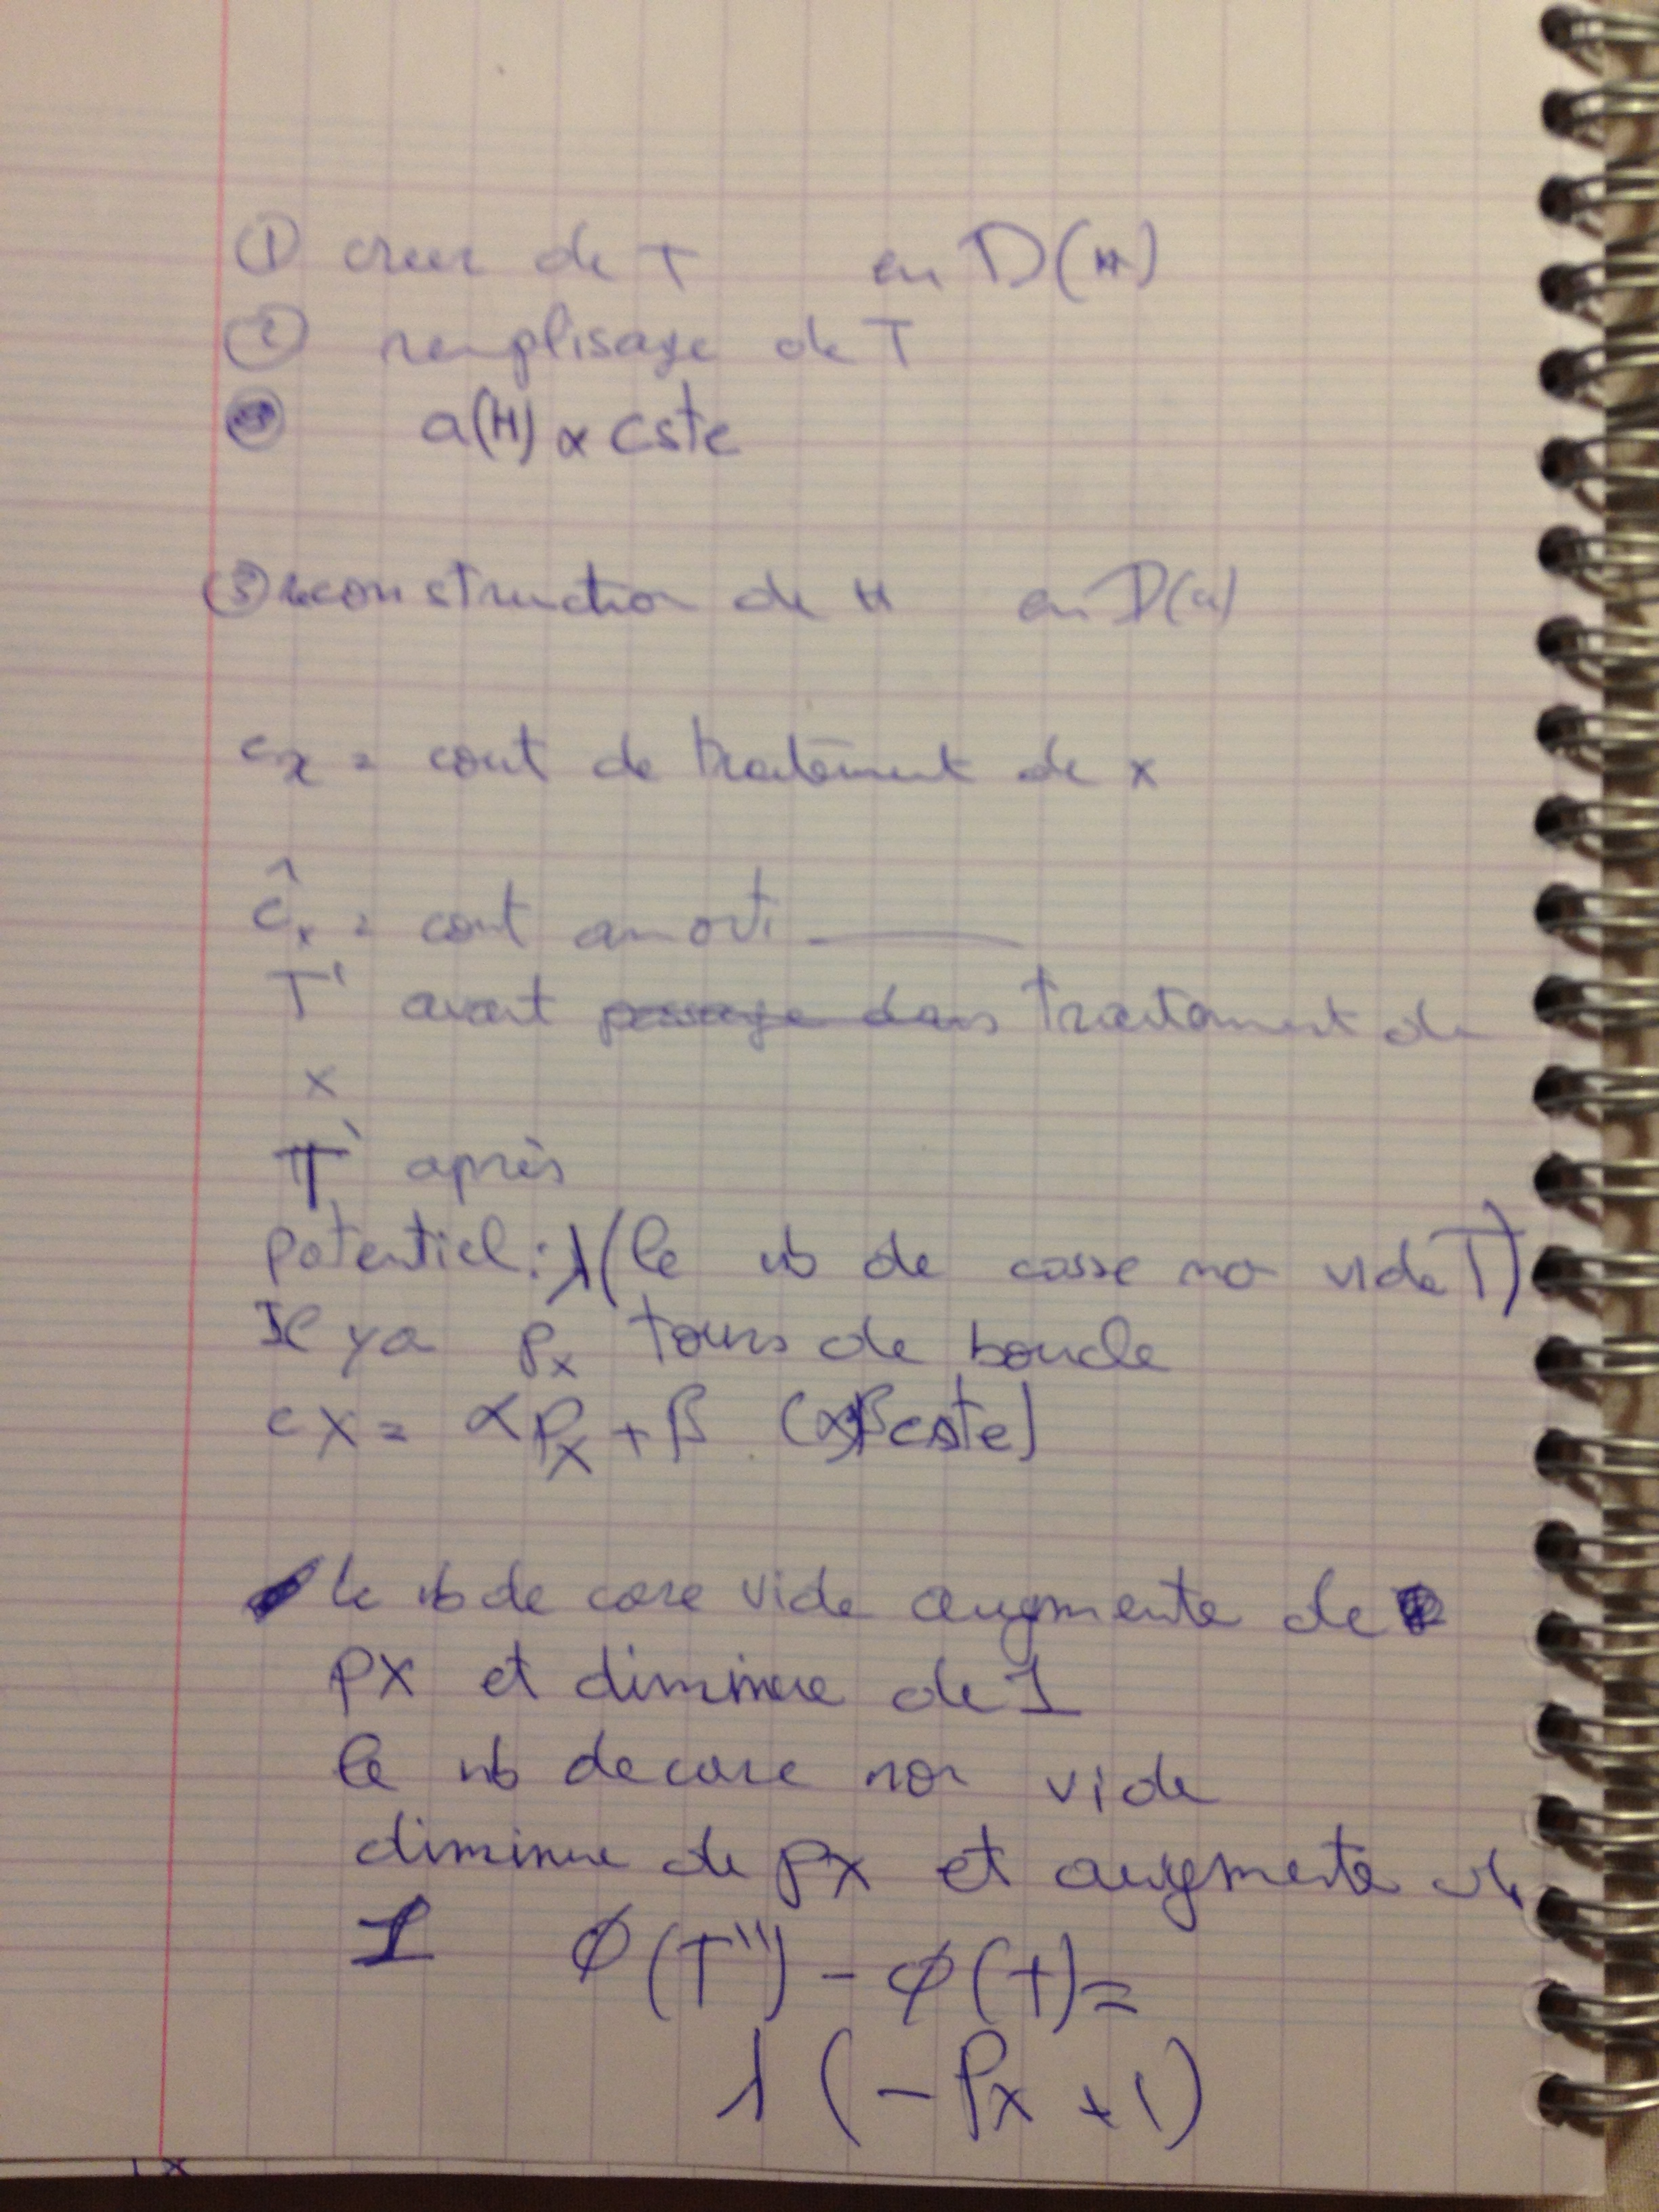 ① creer de T en D(H)
② remplisage de T
a(H) x cste
③ reconstruction de H en D(a)
cx = cout de traitement de x
ĉx = cout amorti ———
T' avant passage dans traitement de
x
T' après
potentiel : λ(le nb de casse no vide T)
Il y a px tours de boucle
cx = αpx + β (α β cste)
le nb de case vide augmente de
px et diminue de 1
le nb de case non vide
diminue de px et augmente de
1 ϕ(T'') - ϕ(T) =
λ(-px + 1)